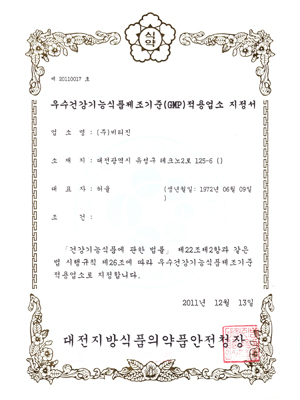 식약
제 20110017 호
우수건강기능식품제조기준(GMP)적용업소 지정서
업 소 명 : (주)비티진
소 재 지 : 대전광역시 유성구 테크노2로 125-6 ()
대 표 자 : 허율 (생년월일: 1972년 06월 09일
)
조 건 :
「건강기능식품에 관한 법률」 제22조제2항과 같은
법 시행규칙 제26조에 따라 우수건강기능식품제조기준
적용업소로 지정합니다.
2011년 12월 13일
대전지방식품의약품안전청장